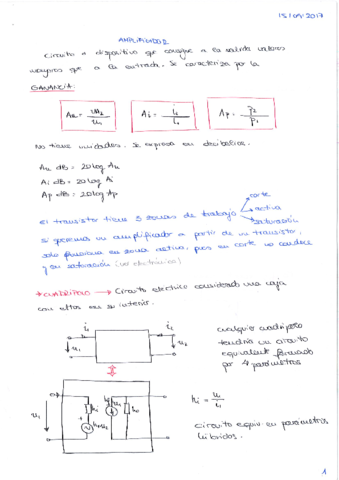 15/09/2017
AMPLIFICADOR
Circuito o dispositivo que consigue a la salida valores
mayores que a la entrada. Se caracteriza por la
GANANCIA:
Au = u2/u1   Ai = i2/i1   Ap = P2/P1
No tiene unidades. Se expresa en decibelios.
Au dB = 20 log Au
Ai dB = 20 log Ai
Ap dB = 20 log Ap
corte
El transistor tiene 3 zonas de trabajo → activa
saturación
si queremos un amplificador a partir de un transistor,
solo funciona en zona activa, pues en corte no conduce
y en saturación
→ CUADRIPOLO → Circuito eléctrico considerado una caja
con en su interior.
i1   i2
u1   u2
cualquier cuadripolo
tendría un circuito
equivalente formado
por 4 parámetros
u1
hi = u1/i1
circuito equiv en parámetros
híbridos.
1